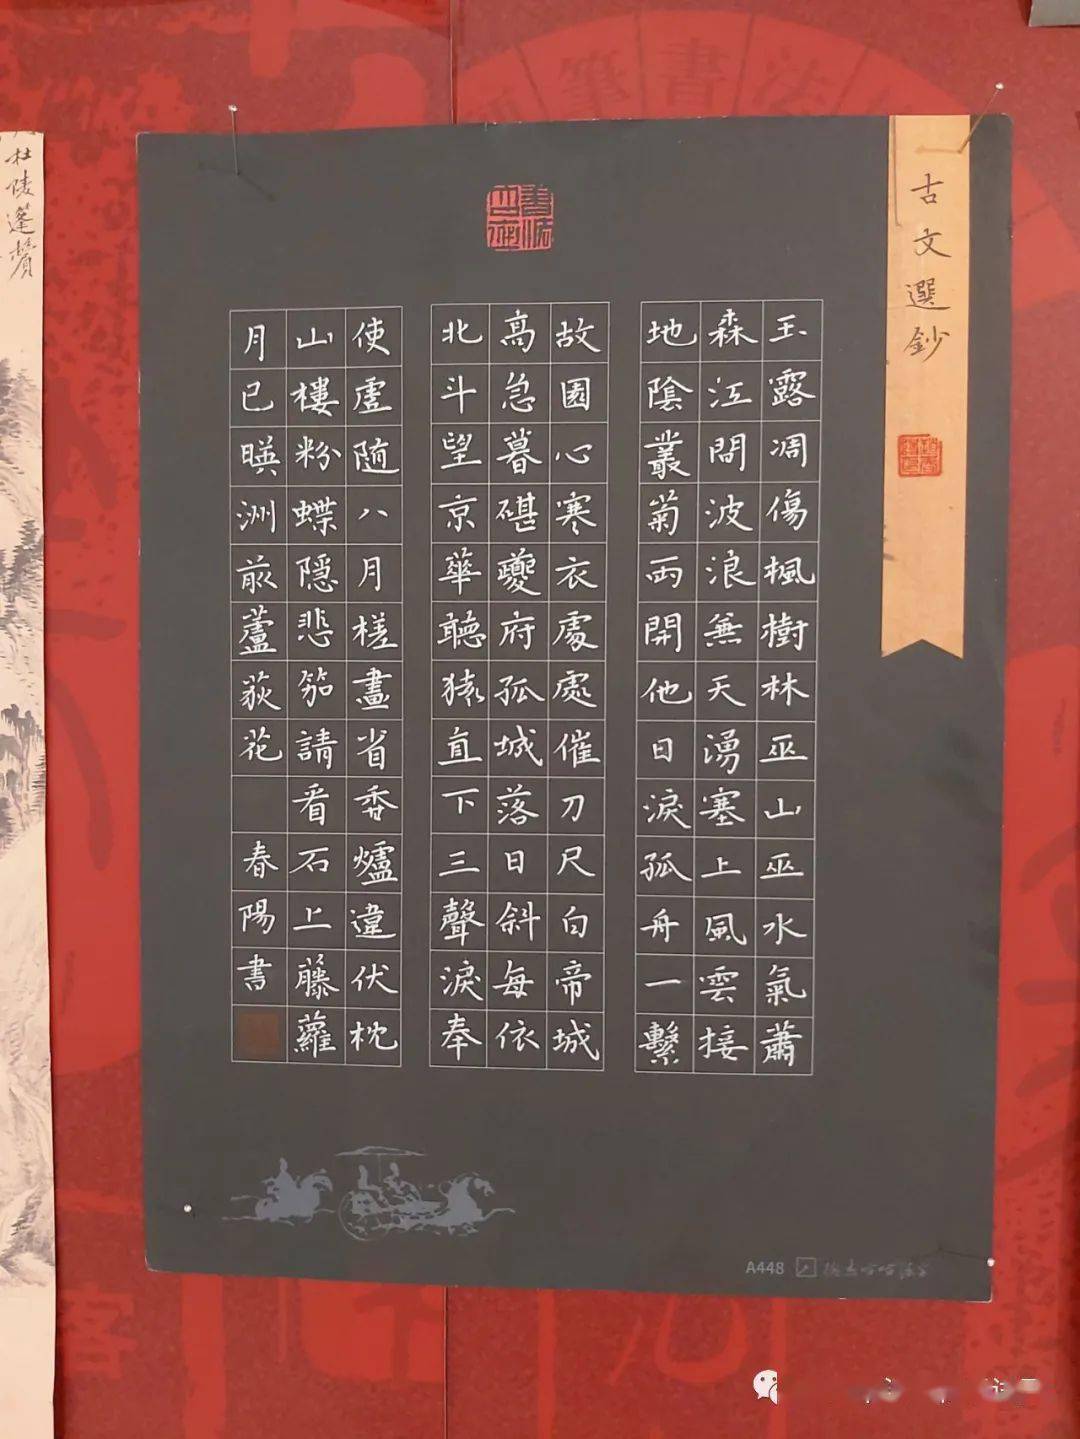 古文選鈔
玉露凋傷楓樹林巫山巫水氣蕭
森江間波浪無天湧塞上風雲接
地陰叢菊兩開他日淚孤舟一繫
故園心寒衣處處催刀尺白帝城
高急暮碪夔府孤城落日斜每依
北斗望京華聽猿直下三聲淚奉
使虛隨八月槎畫省香爐違伏枕
山樓粉蝶隱悲笳請看石上藤蘿
月已暎洲前蘆荻花 春陽書
A448
杜陵
筆書法
客